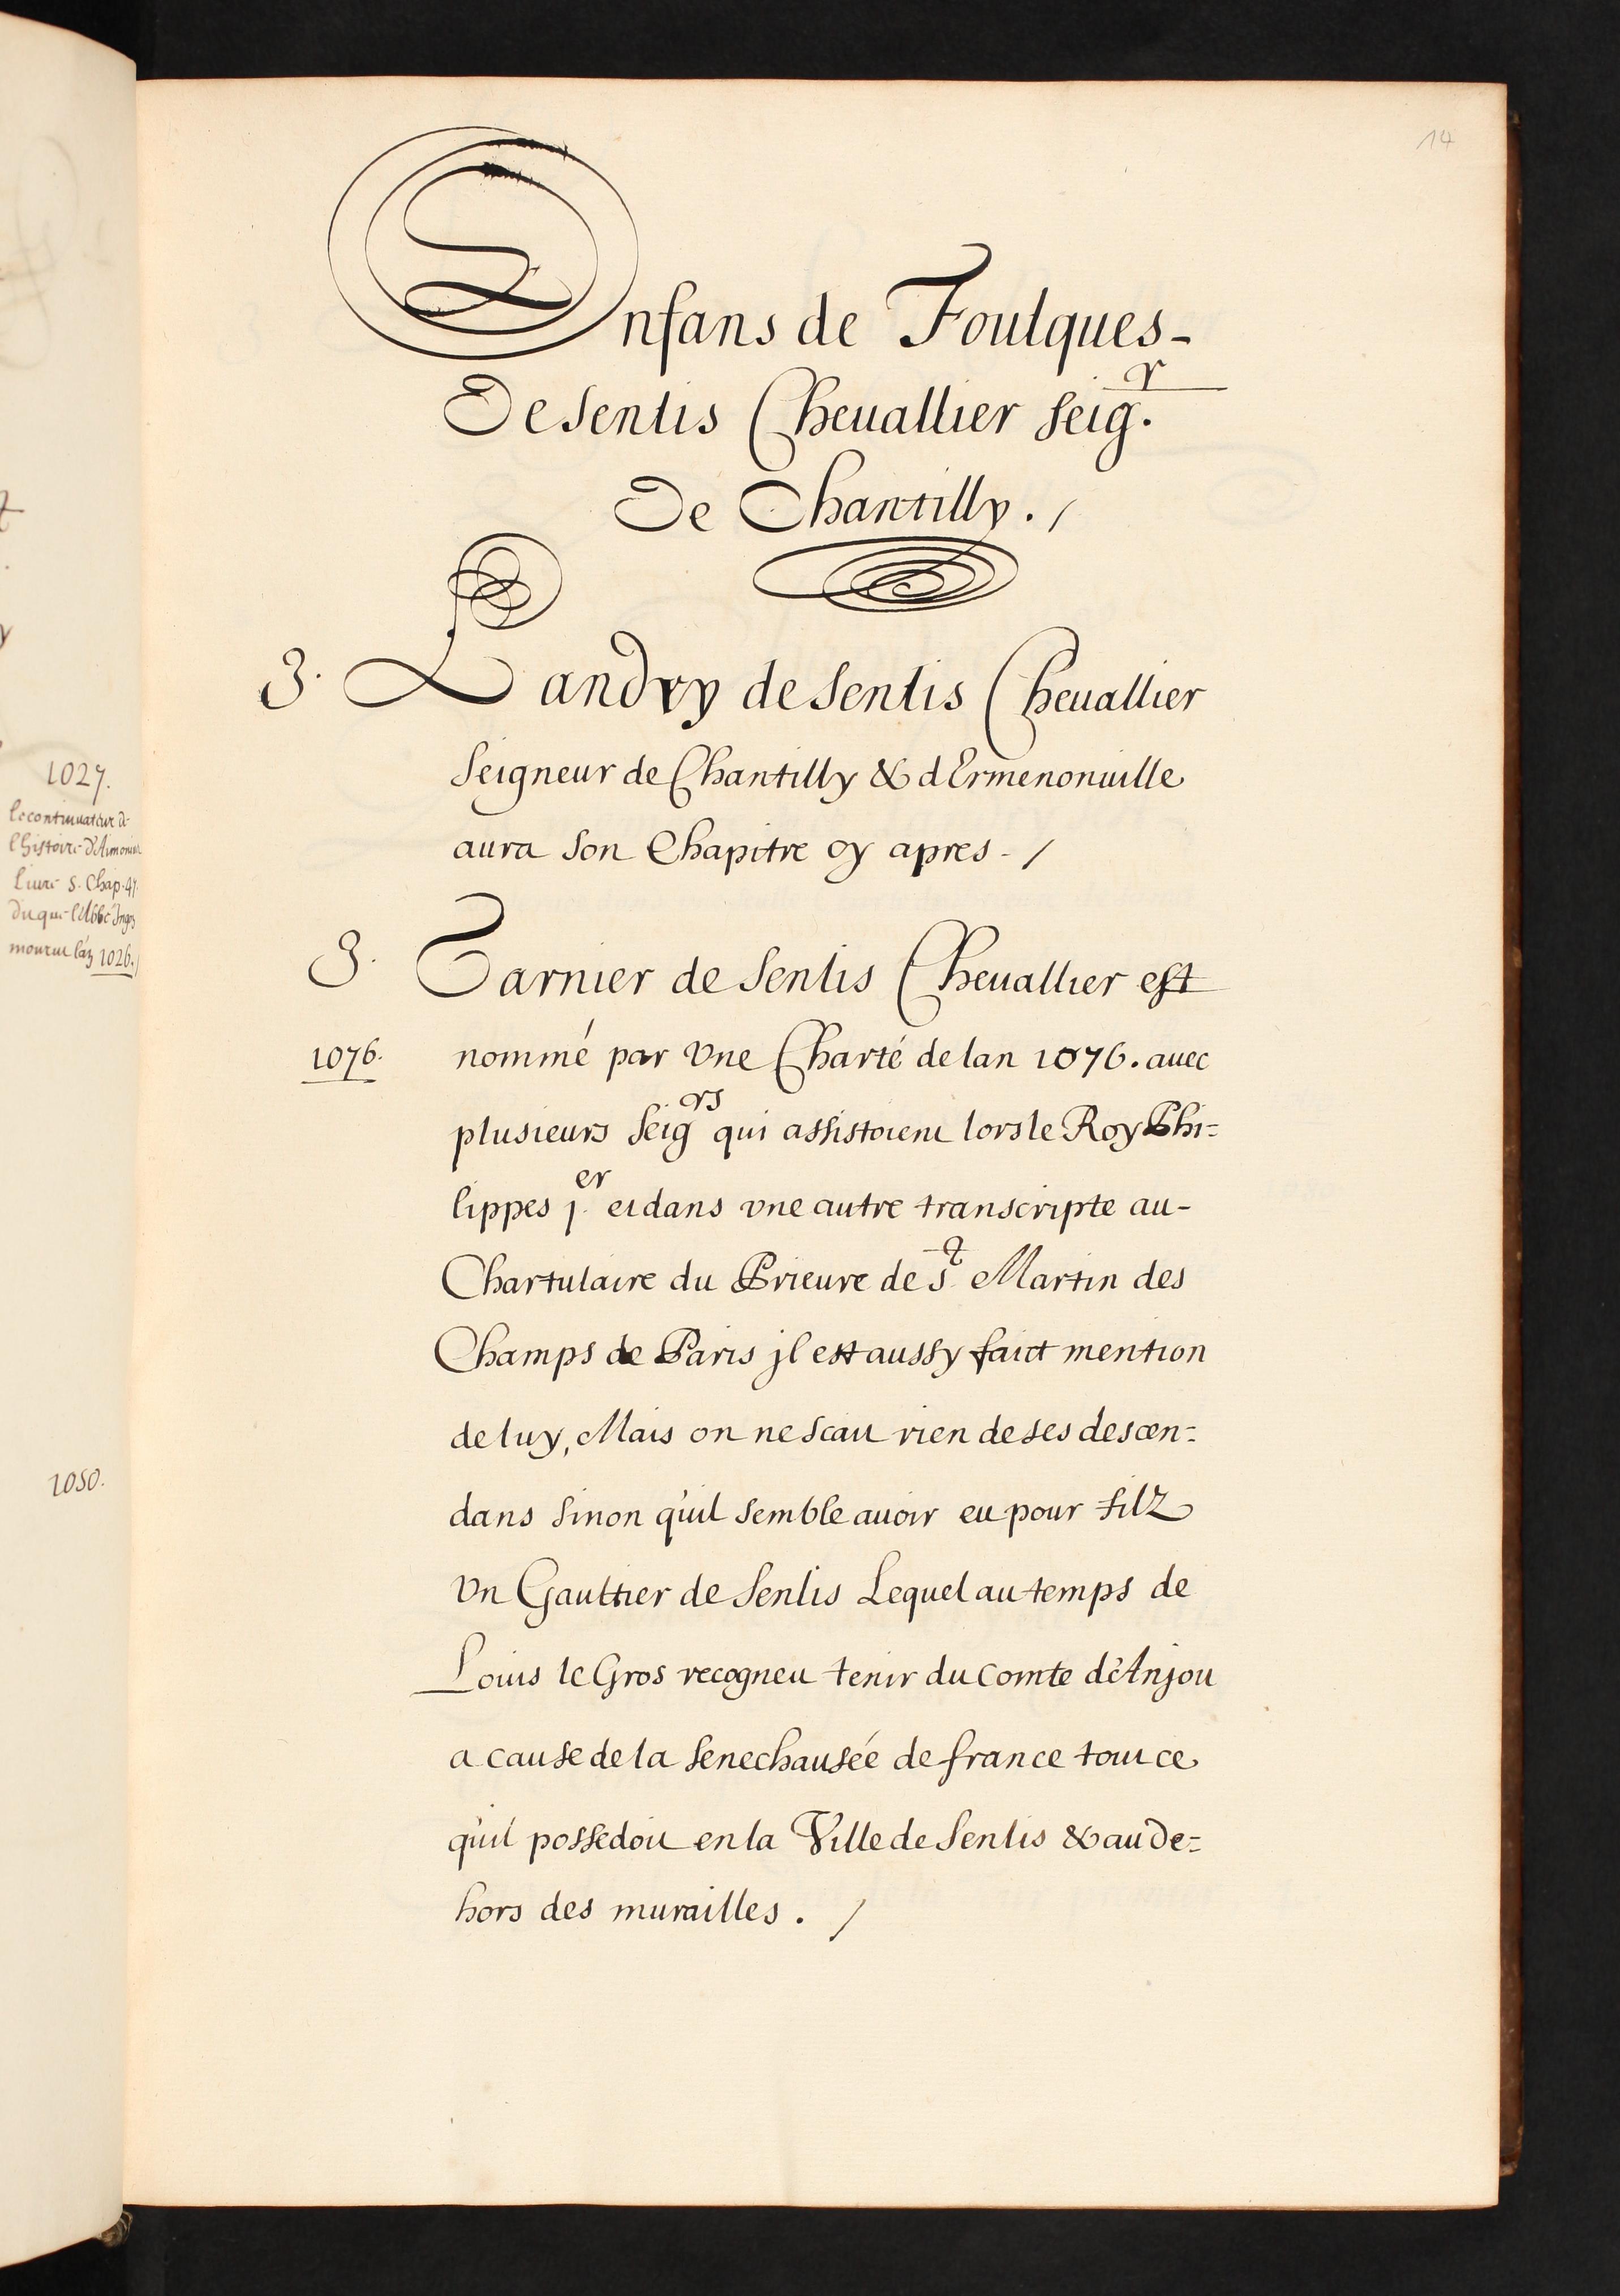 14
Enfans de Foulques-
De Senlis Cheuallier Seig.r
De Chantilly. /
3. Landry de Senlis Cheuallier
Seigneur de Chantilly & d'Ermenonuille
aura Son Chapitre cy apres - /
3. Garnier de Senlis Cheuallier est
1076. nommé par Vne Charté de lan 1076. auec
plusieurs Seigrs qui assistoient lors le Roy Phi=
lippes j.er et dans vne autre transcripte au-
Chartulaire du Prieure de St Martin des
Champs de Paris jl est aussy faict mention
de luy, Mais on ne scait rien de ses descen=
dans Sinon qu'il Semble auoir eu pour filz
Vn Gaultier de Senlis Lequel au temps de
Louis le Gros recogneu tenir du Comte d'Anjou
a cause de la Senechausée de france tout ce
qu'il possedoit en la Ville de Senlis & au de=
hors des murailles. /
1027.
le continuateur de
l'histoire d'Aimonius
Liure 5. Chap. 47.
Du que l'Abbé
mourut l'an 1026. /
1050.